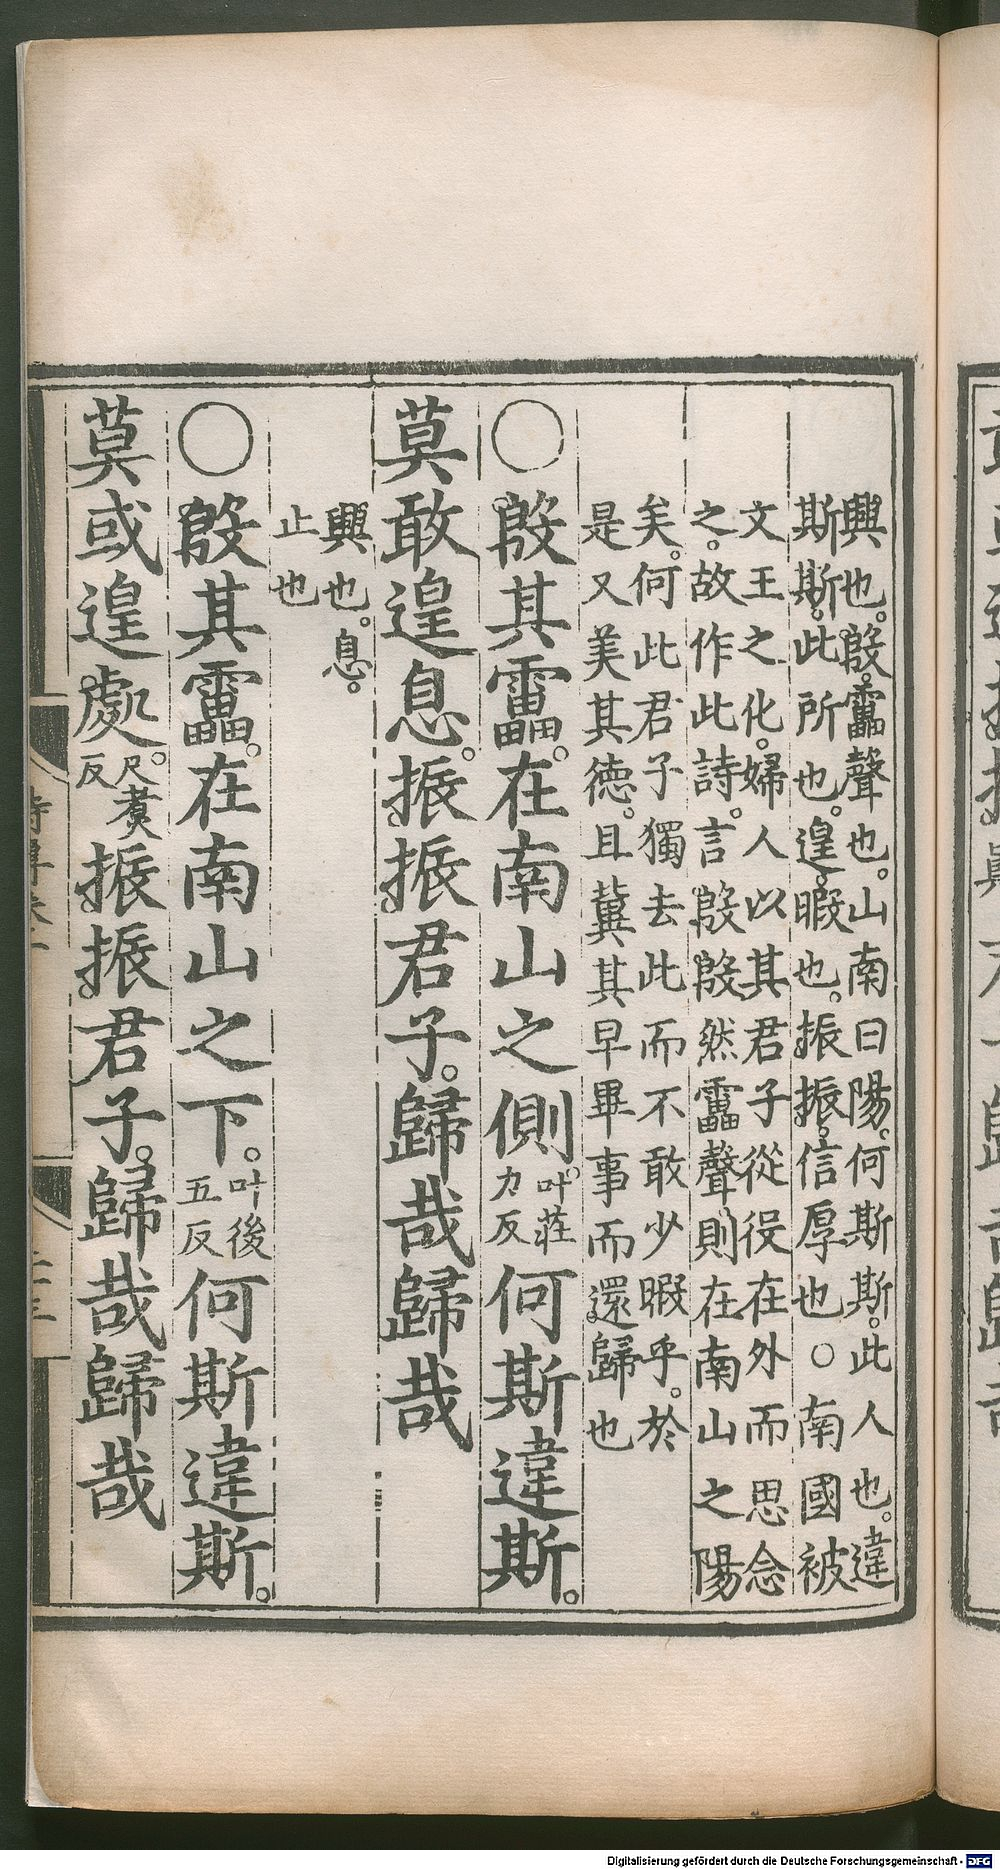 興也。殷。靁聲也。山南曰陽。何斯斯。此人也。違
斯斯。此所也。遑。暇也。振振。信厚也○南國被
文王之化。婦人以其君子從役在外而思念
之。故作此詩。言殷殷然靁聲。則在南山之陽
矣。何此君子獨去此而不敢少暇乎。於
是又美其德。且冀其早畢事而還歸也
○殷其靁。在南山之側。叶莊力反何斯違斯。
莫敢遑息。振振君子。歸哉歸哉
興也。息。
止也
○殷其靁。在南山之下。叶後五反何斯違斯。
莫或遑處。尺煑反振振君子。歸哉歸哉
Digitalisierung gefördert durch die Deutsche Forschungsgemeinschaft - DFG